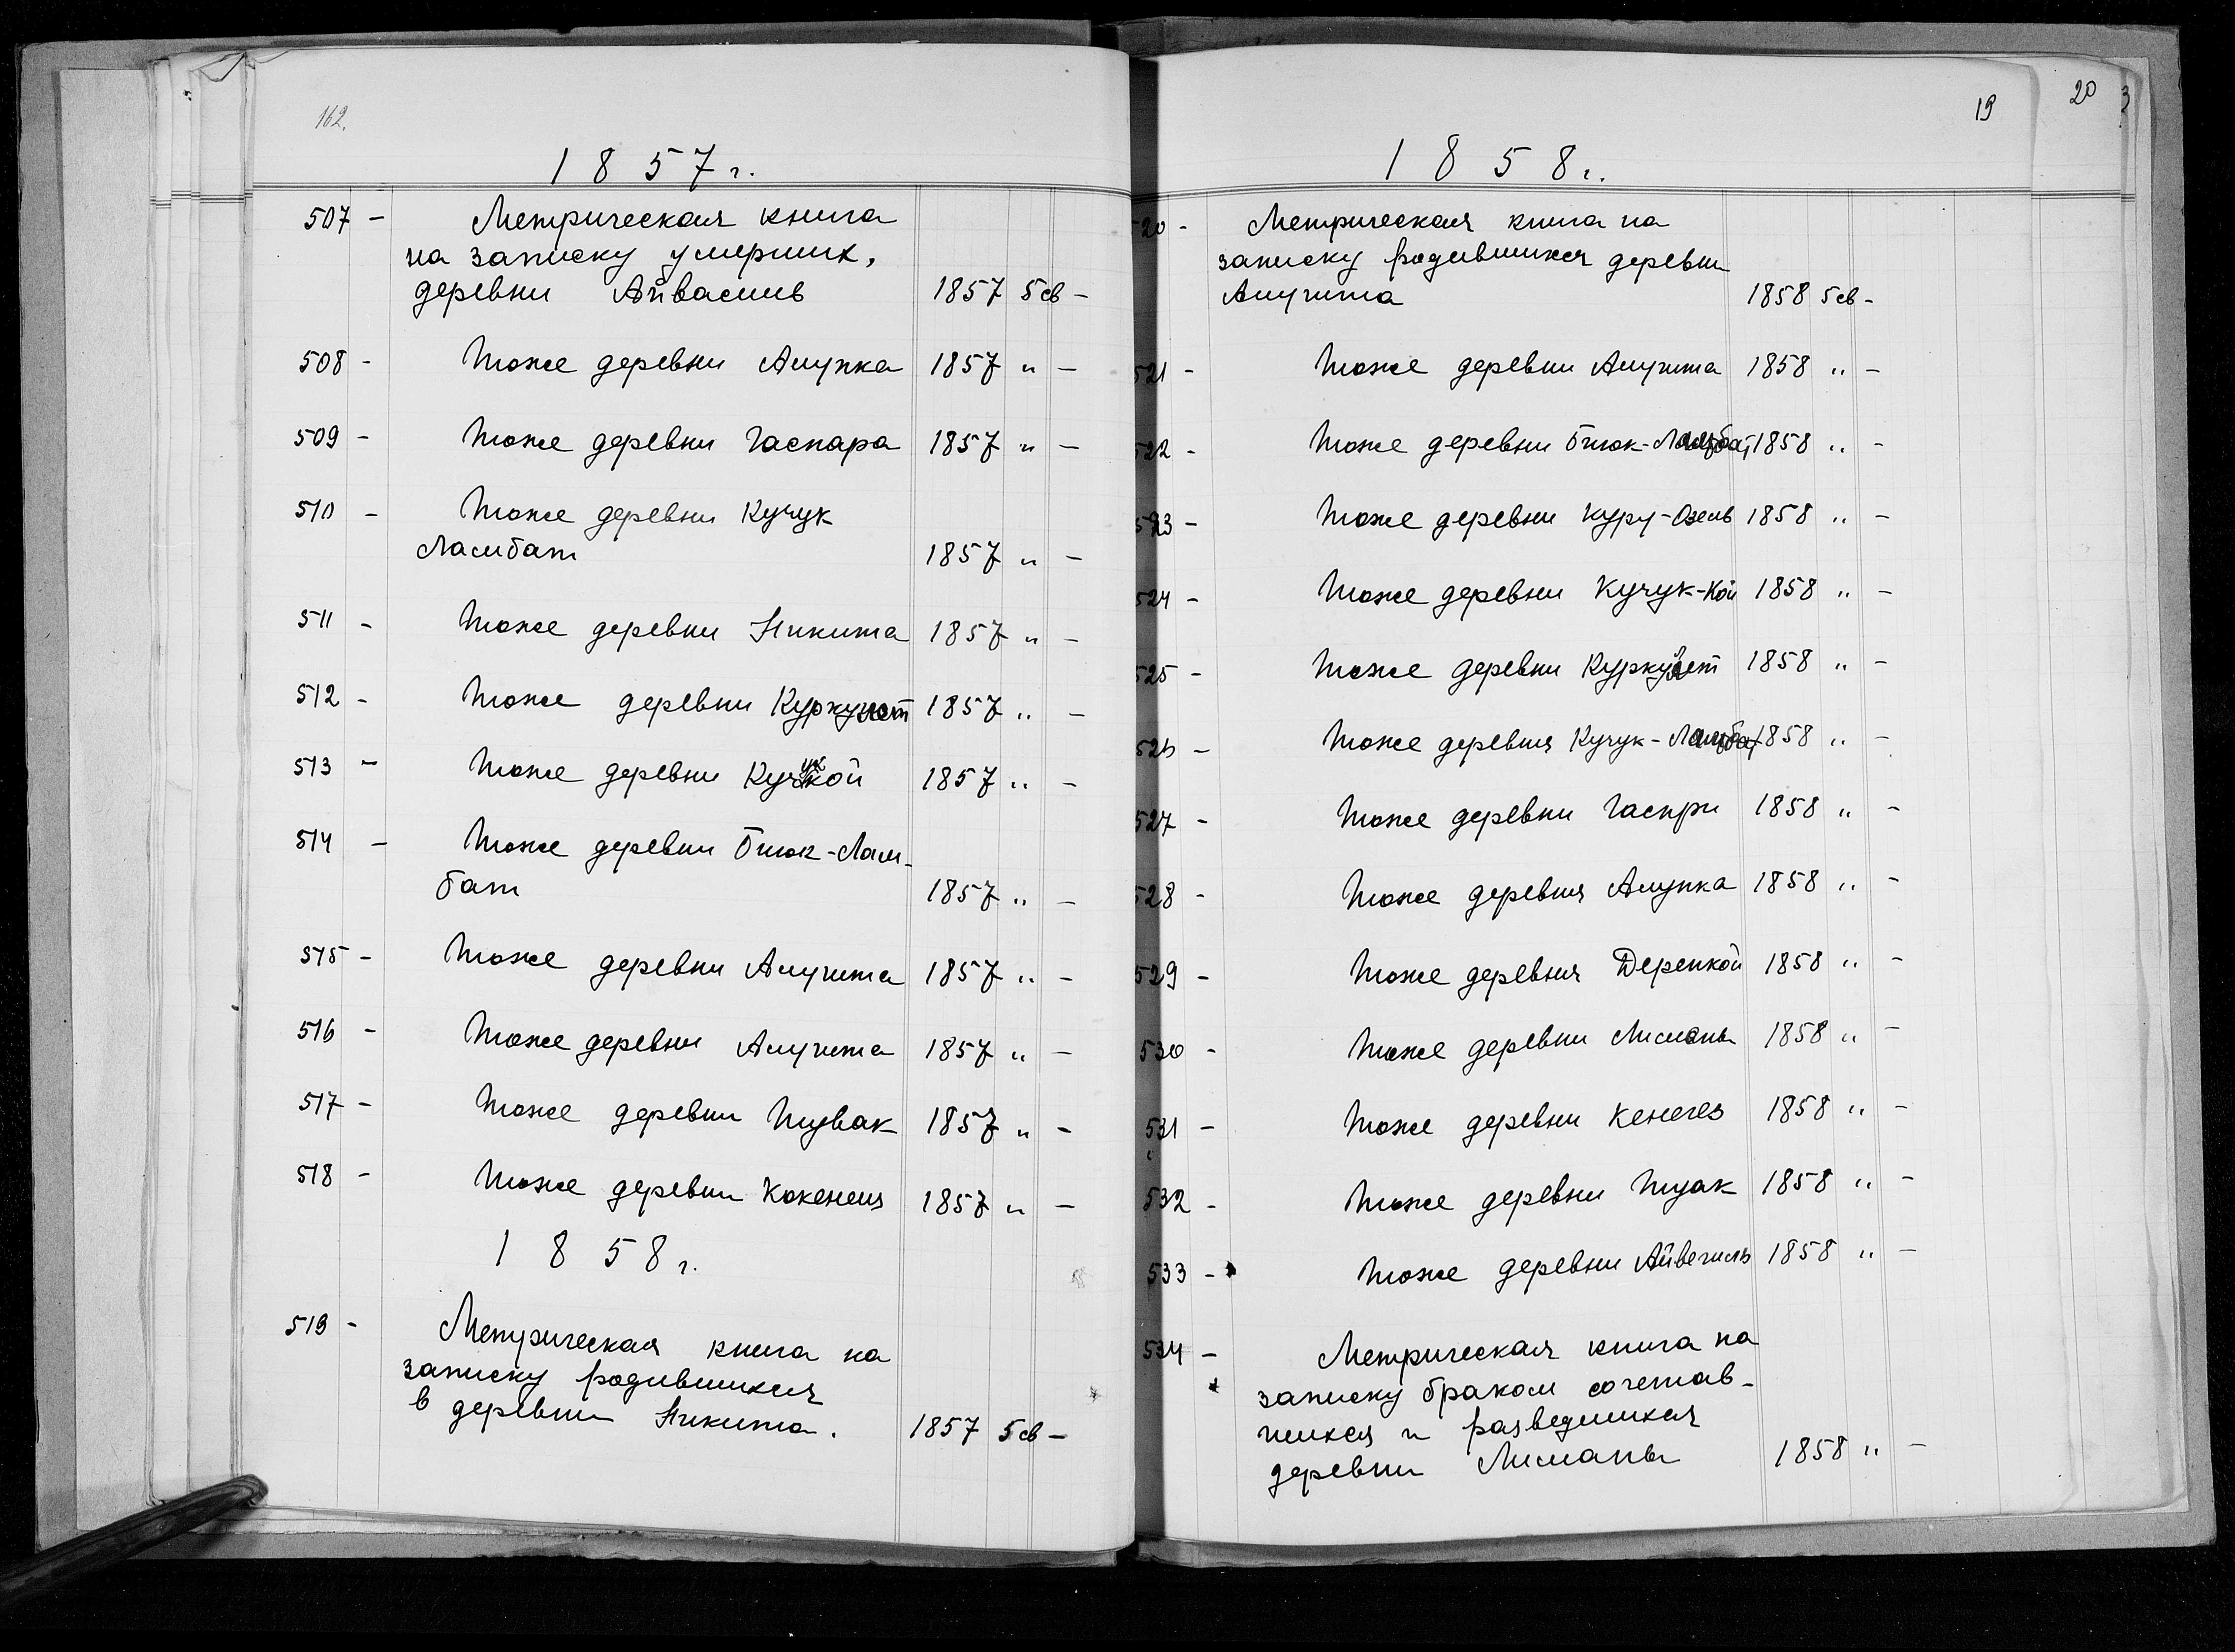 162.
1857 г.
507 - Метрическая книга
на записку умерших,
деревни Айвасиль 1857 5 св -
508 - Тоже деревни Алупка 1857 " -
509 - Тоже деревни Гаспара 1857 " -
510 - Тоже деревни Кучук
Ламбат 1857 " -
511 - Тоже деревни Никита 1857 " -
512 - Тоже деревни 1857 " -
513 - Тоже деревни Кучуккой 1857 " -
514 - Тоже деревни Биюк-Лам-
бат 1857 " -
515 - Тоже деревни Алушта 1857 " -
516 - Тоже деревни Алушта 1857 " -
517 - Тоже деревни Тувак 1857 " -
518 - Тоже деревни Кокенеия 1857 " -
1858 г.
519 - Метрическая книга на
записку родившихся
в деревни Никита. 1857 5 св -
19
20
3
1858 г.
520 - Метрическая книга на
записку родившихся деревни
Алушта 1858 5 св -
521 - Тоже деревни Алушта 1858 " -
522 - Тоже деревни Биюк-Ламбат 1858 " -
523 - Тоже деревни Куру-Озень 1858 " -
524 - Тоже деревни Кучук-Кой 1858 " -
525 - Тоже деревни 1858 " -
526 - Тоже деревня Кучук-Ламбат 1858 " -
527 - Тоже деревни Гаспри 1858 " -
528 - Тоже деревня Алупка 1858 " -
529 - Тоже деревня Дерекой 1858 " -
530 - Тоже деревни Лимены 1858 " -
531 - Тоже деревни Кенегез 1858 " -
532 - Тоже деревни Туак 1858 " -
533 - Тоже деревни 1858 " -
534 - Метрическая книга на
записку браком сочетав-
шихся и разведшихся
деревни Лиманы 1858 " -